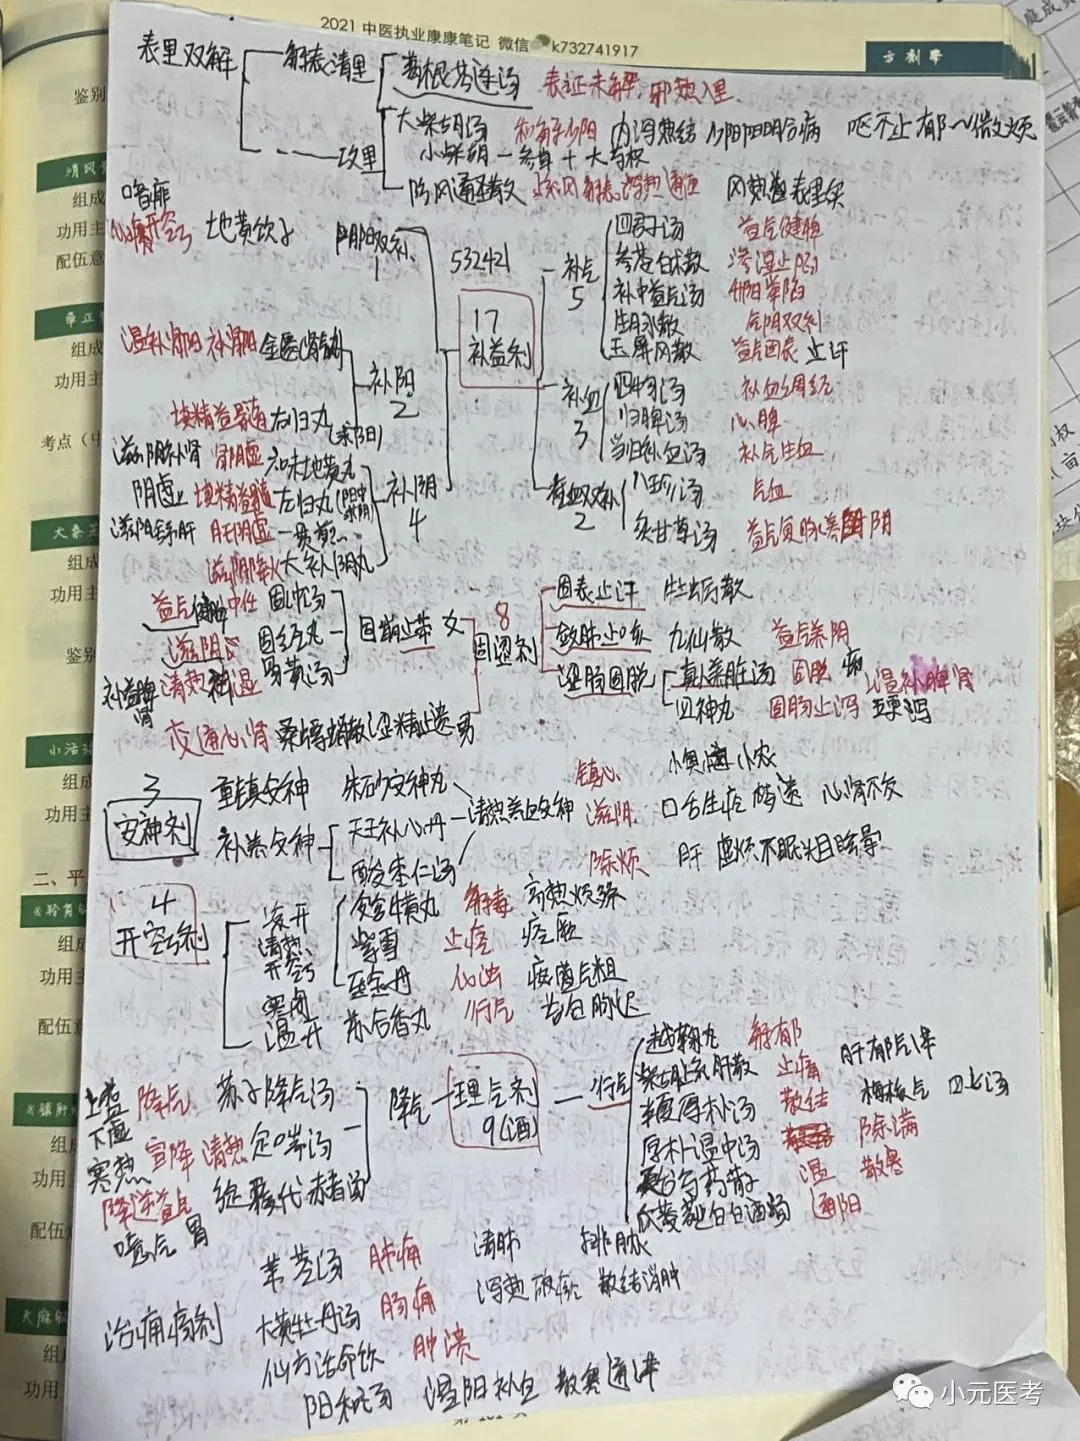 2021 中医执业康康笔记 微信 k732741917
方剂学
庭成员
表里双解
解表清里
葛根芩连汤 表证未解,邪热入里
攻里
大柴胡汤 和解少阳 内泻热结 少阳阳明合病 呕不止 郁~微烦
小柴胡-参草+大芍枳
防风通圣散 疏风解表 泻热通便 风热壅 表里实
喑痱
地黄饮子
阴阳双补
1
532421
17
补益剂
补气
5
四君子汤 益气健脾
参苓白术散 渗湿止泻
补中益气汤 升阳举陷
生脉散 气阴双补
玉屏风散 益气固表 止汗
补血
3
四物汤 补血调经
归脾汤 心脾
当归补血汤 补气生血
气血双补
2
八珍汤 气血
炙甘草汤 益气复脉 滋阴
温补肾阳 补肾阳 金匮肾气丸
补阳
2
填精益髓 右归丸
(求阳)
补阴
4
滋阴补肾 肾阴虚 六味地黄丸
阴虚 填精益髓 左归丸
滋阴疏肝 肝肾阴虚 一贯煎
滋阴降火 大补阴丸
8
固涩剂
固表止汗 牡蛎散
敛肺止咳 九仙散 益气养阴
涩肠固脱
真人养脏汤 固脱 温补脾肾
四神丸 固肠止泻 五更泻
固崩止带 女
益气健脾 冲任 固冲汤
滋阴 固经丸
补益脾肾 清热 祛湿 易黄汤
交通心肾 桑螵蛸散 涩精止遗 男
3
安神剂
重镇安神 朱砂安神丸
补养安神
天王补心丹
酸枣仁汤
清热养血安神
镇心
滋阴 口舌生疮 梦遗 心肾不交
除烦 肝 虚烦不眠 头目眩晕
4
开窍剂
凉开
清热
开窍
安宫牛黄丸 解毒 高热烦躁
紫雪 止痉 痉厥
至宝丹 化浊 痰盛气粗
寒闭
温开 苏合香丸 行气 苔白脉迟
理气剂
9(酒)
行气
越鞠丸 解郁
柴胡疏肝散 止痛 肝郁气滞
半夏厚朴汤 散结 梅核气 四七汤
厚朴温中汤 除满
天台乌药散 温 散寒
瓜蒌薤白白酒汤 通阳
降气
上盛下虚 降气 苏子降气汤
寒热 宣降 清热 定喘汤
降逆益气 旋覆代赭汤
噫气 胃
治痈疡剂
苇茎汤 肺痈 清肺 排脓
大黄牡丹汤 肠痈 泻热破瘀 散结消肿
仙方活命饮 肿溃
阳和汤 温阳补血 散寒通滞
鉴别
清风
组成
功用主
配伍意
组成
功用主
考点(中
大秦艽
组成
功用主
鉴别
小活
组成
功用主
二、平
组成
功用主
配伍意
镇肝
组成
功用主
配伍意
天麻
组成
功用主
小元医考